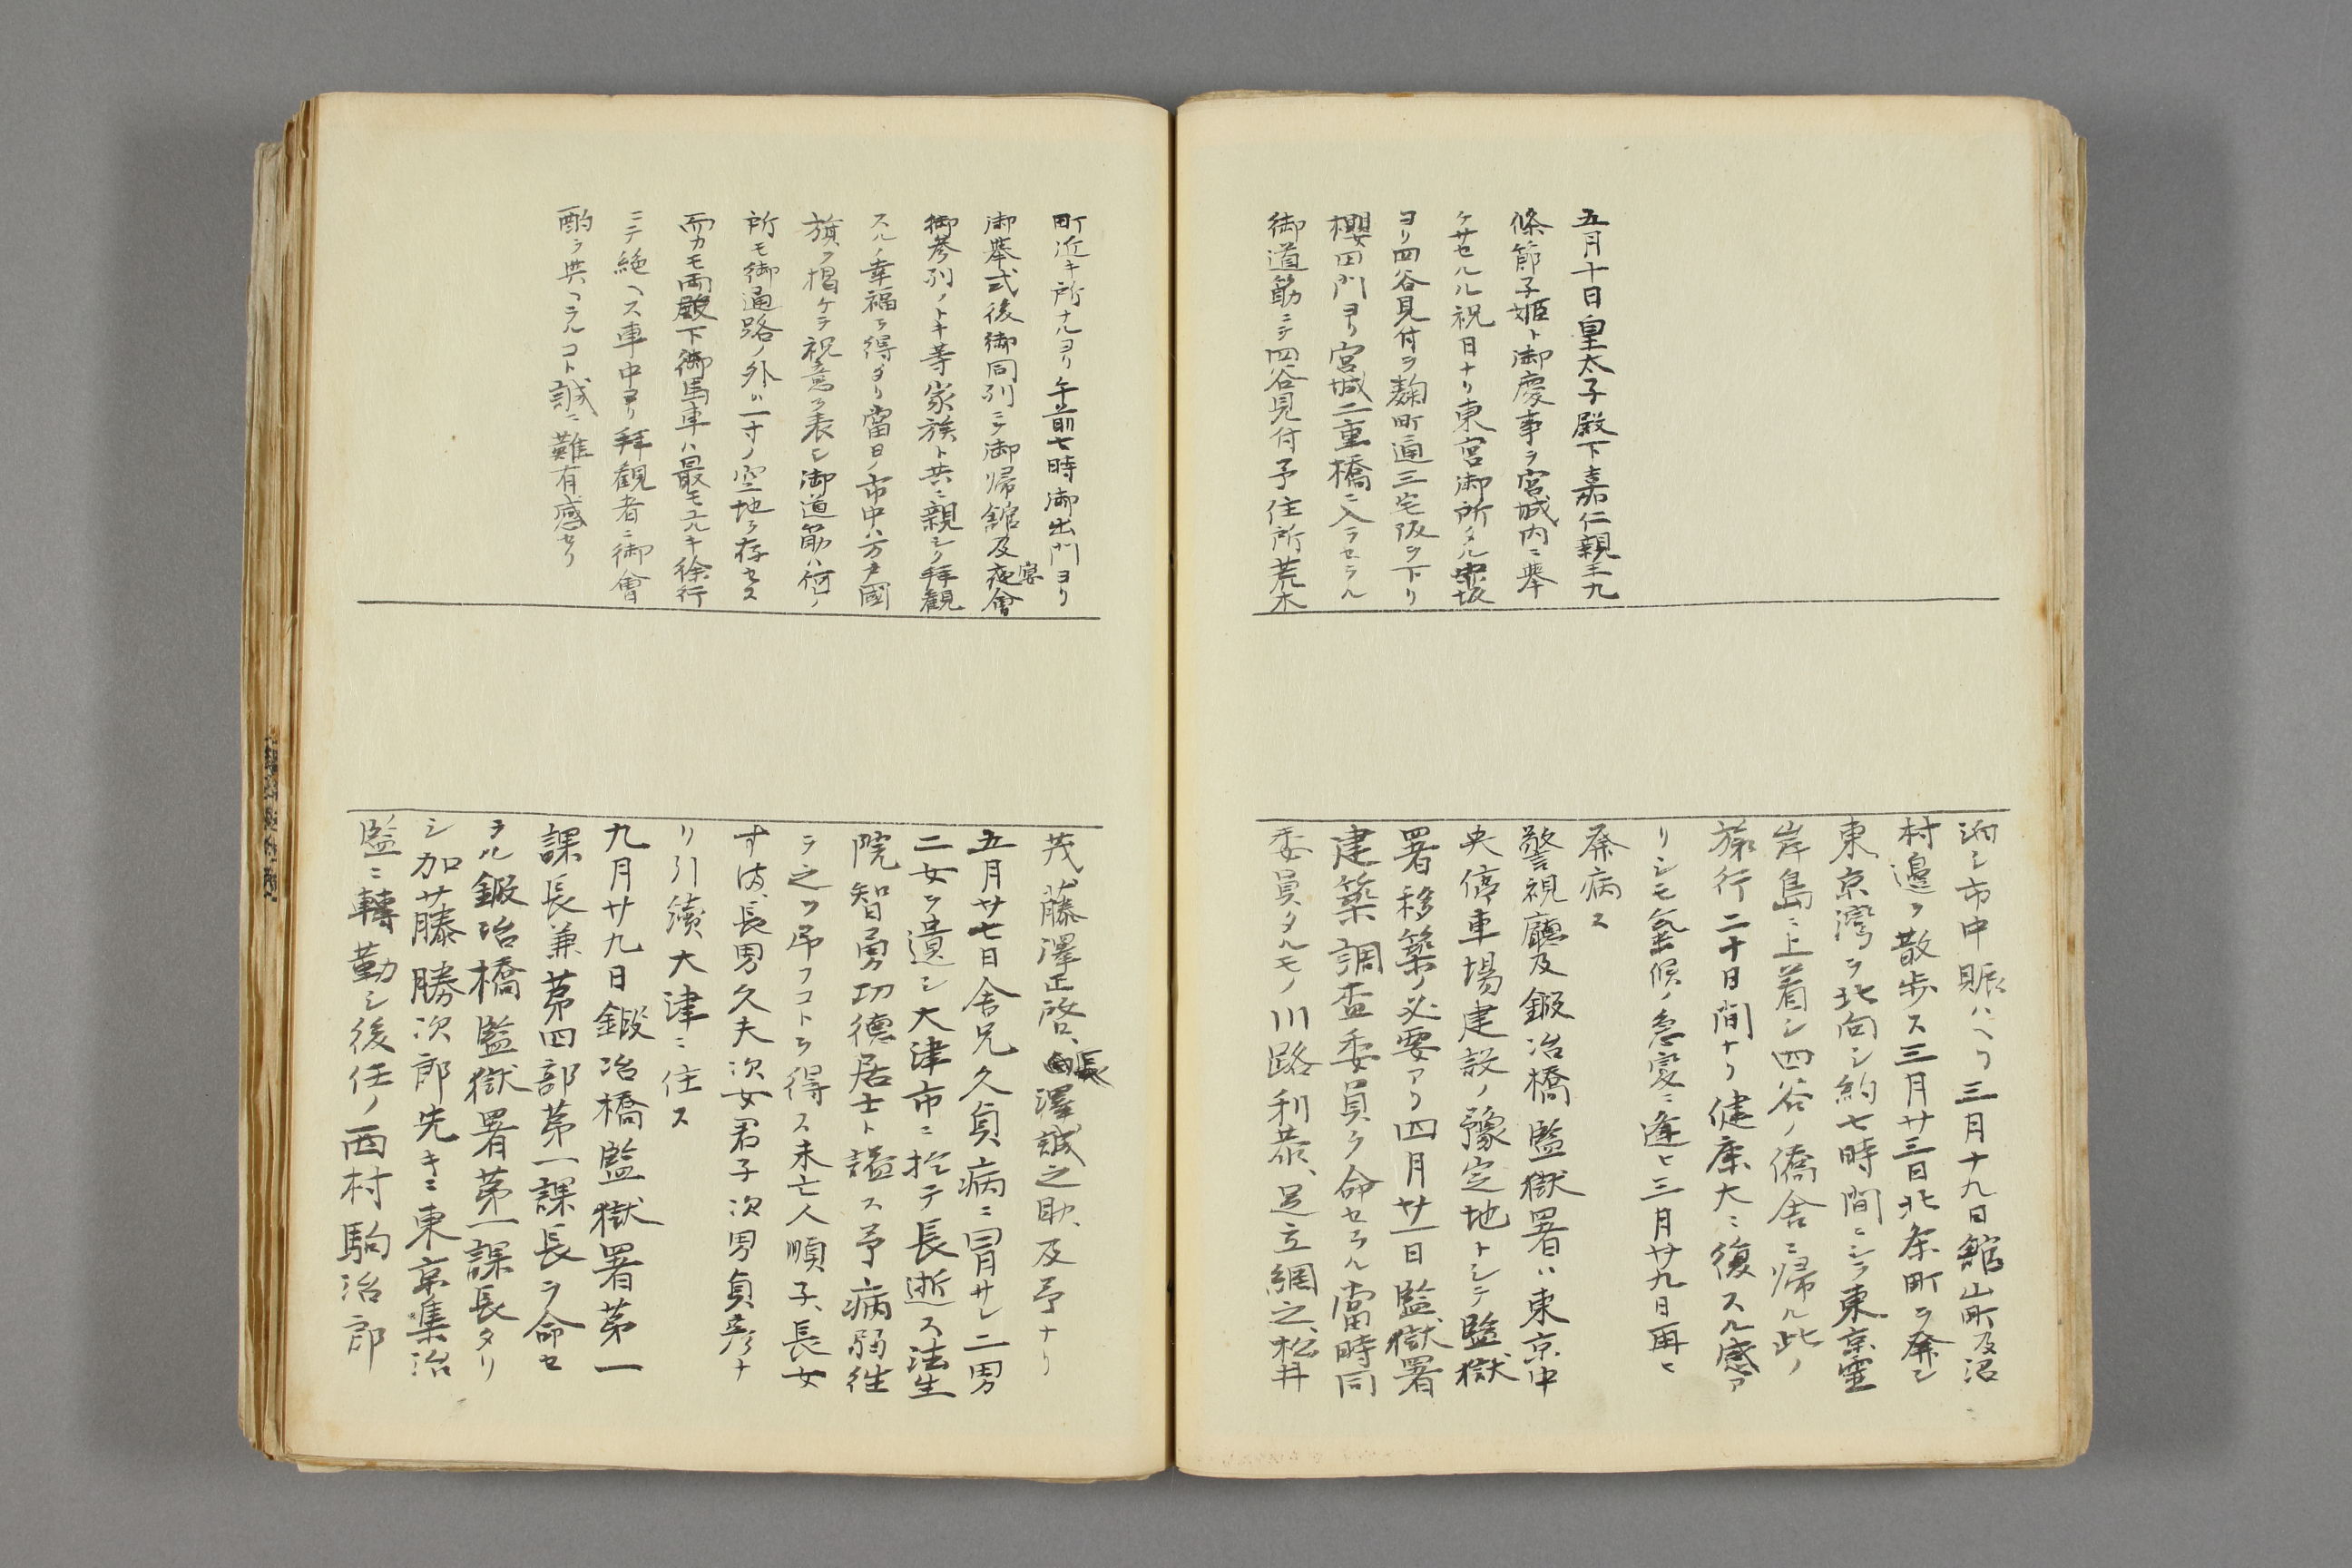 五月十日皇太子殿下嘉仁親王九
條節子姫ト御慶事ヲ宮城内ニ挙
ケサセルル祝日ナリ東宮御所タル
ヨリ四谷見付ヲ麹町通三宅坂ヲ下リ
櫻田門ヨリ宮城二重橋ニ入ラセラル
御道筋ニテ四谷見付予住所荒木
町近キ所ナルヨリ午前七時御出門ヨリ
御挙式後御同列ニテ御帰館及夜宴會
御参列ノトキ等家族ト共ニ親シク拝観
スルノ幸福ヲ得タリ當日ノ市中ハ万戸國
旗ヲ掲ケテ祝意ヲ表シ御道筋ハ何ノ
所モ御通路ノ外ハ一寸ノ空地ヲ存セス
而カモ両殿下御馬車ハ最モユルキ徐行
ニテ絶ヘス車中ヨリ拝観者ニ御會
酌ヲ與ヘラルコト誠ニ難有感セリ
泊シ市中賑ハヘリ三月十九日館山町及沼
村邉ヲ散歩ス三月廿三日北条町ヲ発シ
東京湾ヲ北向シ約七時間ニシテ東京霊
岸島ニ上着シ四谷ノ僑舎ニ帰ル此ノ
旅行二十日間ナリ健康大ニ復スル感ア
リシモ氣候ノ急変ニ逢ヒ三月廿九日再ヒ
発病ス
警視廳及鍛冶橋監獄署ハ東京中
央停車場建設ノ豫定地トシテ監獄
署移築ノ必要アリ四月廿一日監獄署
建築調査委員ヲ命セラル當時同
委員タルモノ川路利恭、足立綱之、松井
茂、藤澤正啓、長澤誠之助、及予ナリ
五月廿七日舎兄久貞病ニ冒サレ二男
二女ヲ遺シ大津市ニ於テ長逝ス法生
院智勇功徳居士ト謚ス予病弱往
ラ之ヲ吊フコトヲ得ス未亡人順子、長女
すま、長男久夫次女君子次男貞彦ナ
リ引續大津ニ住ス
九月廿九日鍛冶橋監獄署第一
課長兼第四部第一課長ヲ命セ
ラル鍛冶橋監獄署第一課長タリ
シ加藤勝次郎先キニ東京集治
監ニ轉勤シ後任ノ西村駒治郎